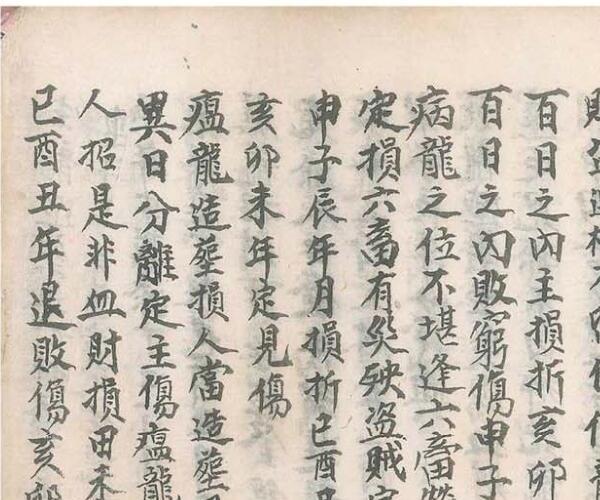 百日之內主損折亥卯
百日之內敗窮傷申子
病龍之位不堪逢六畜
定損六畜有災殃盗賊
申子辰年月損折已酉
亥卯未年定見傷
瘟龍造塟損人當造塟
異日分離定主傷瘟龍
人招是非血財損田
已酉丑年退敗傷亥卯